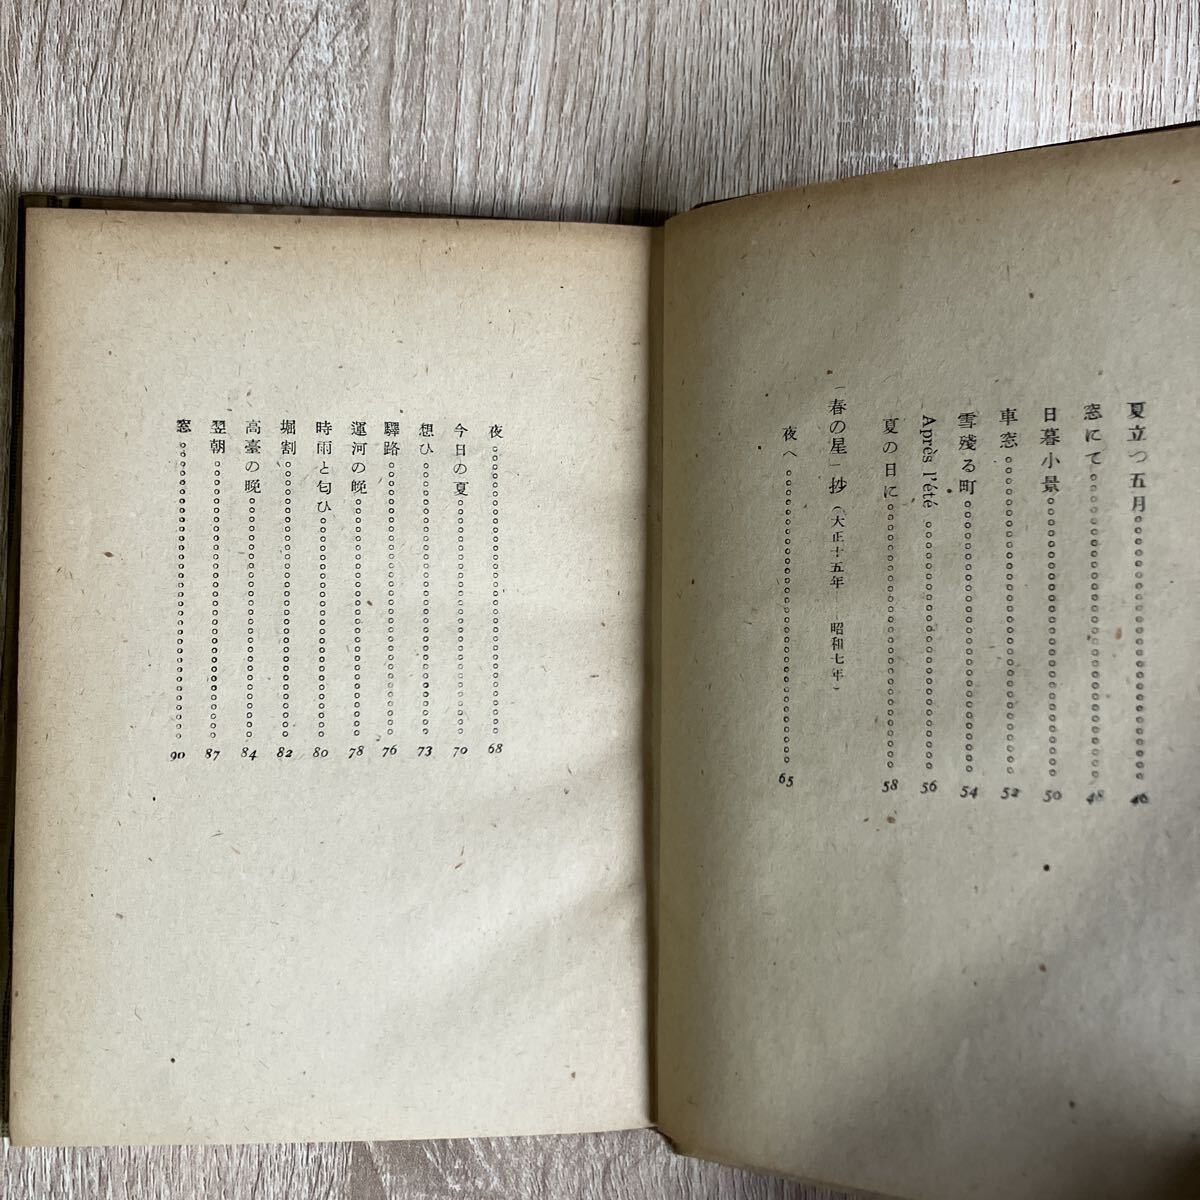 夏立つ五月 46
窓にて 48
日暮小景 50
車窓 52
雪殘る町 54
Après l'été 56
夏の日に 58
「春の星」抄（大正十五年——昭和七年）
夜へ 65
夜 68
今日の夏 70
想ひ 73
驛路 76
運河の晩 78
時雨と匂ひ 80
堀割 82
高臺の晩 84
翌朝 87
窓 90